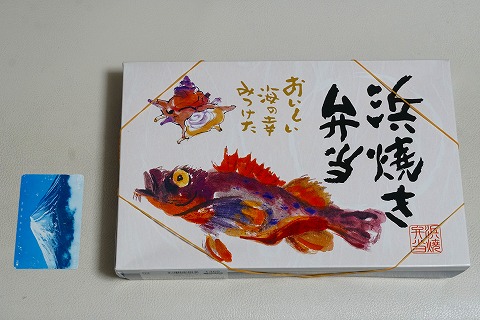 浜焼き
弁当
おいしい
海の幸
みつけた
浜焼
弁当